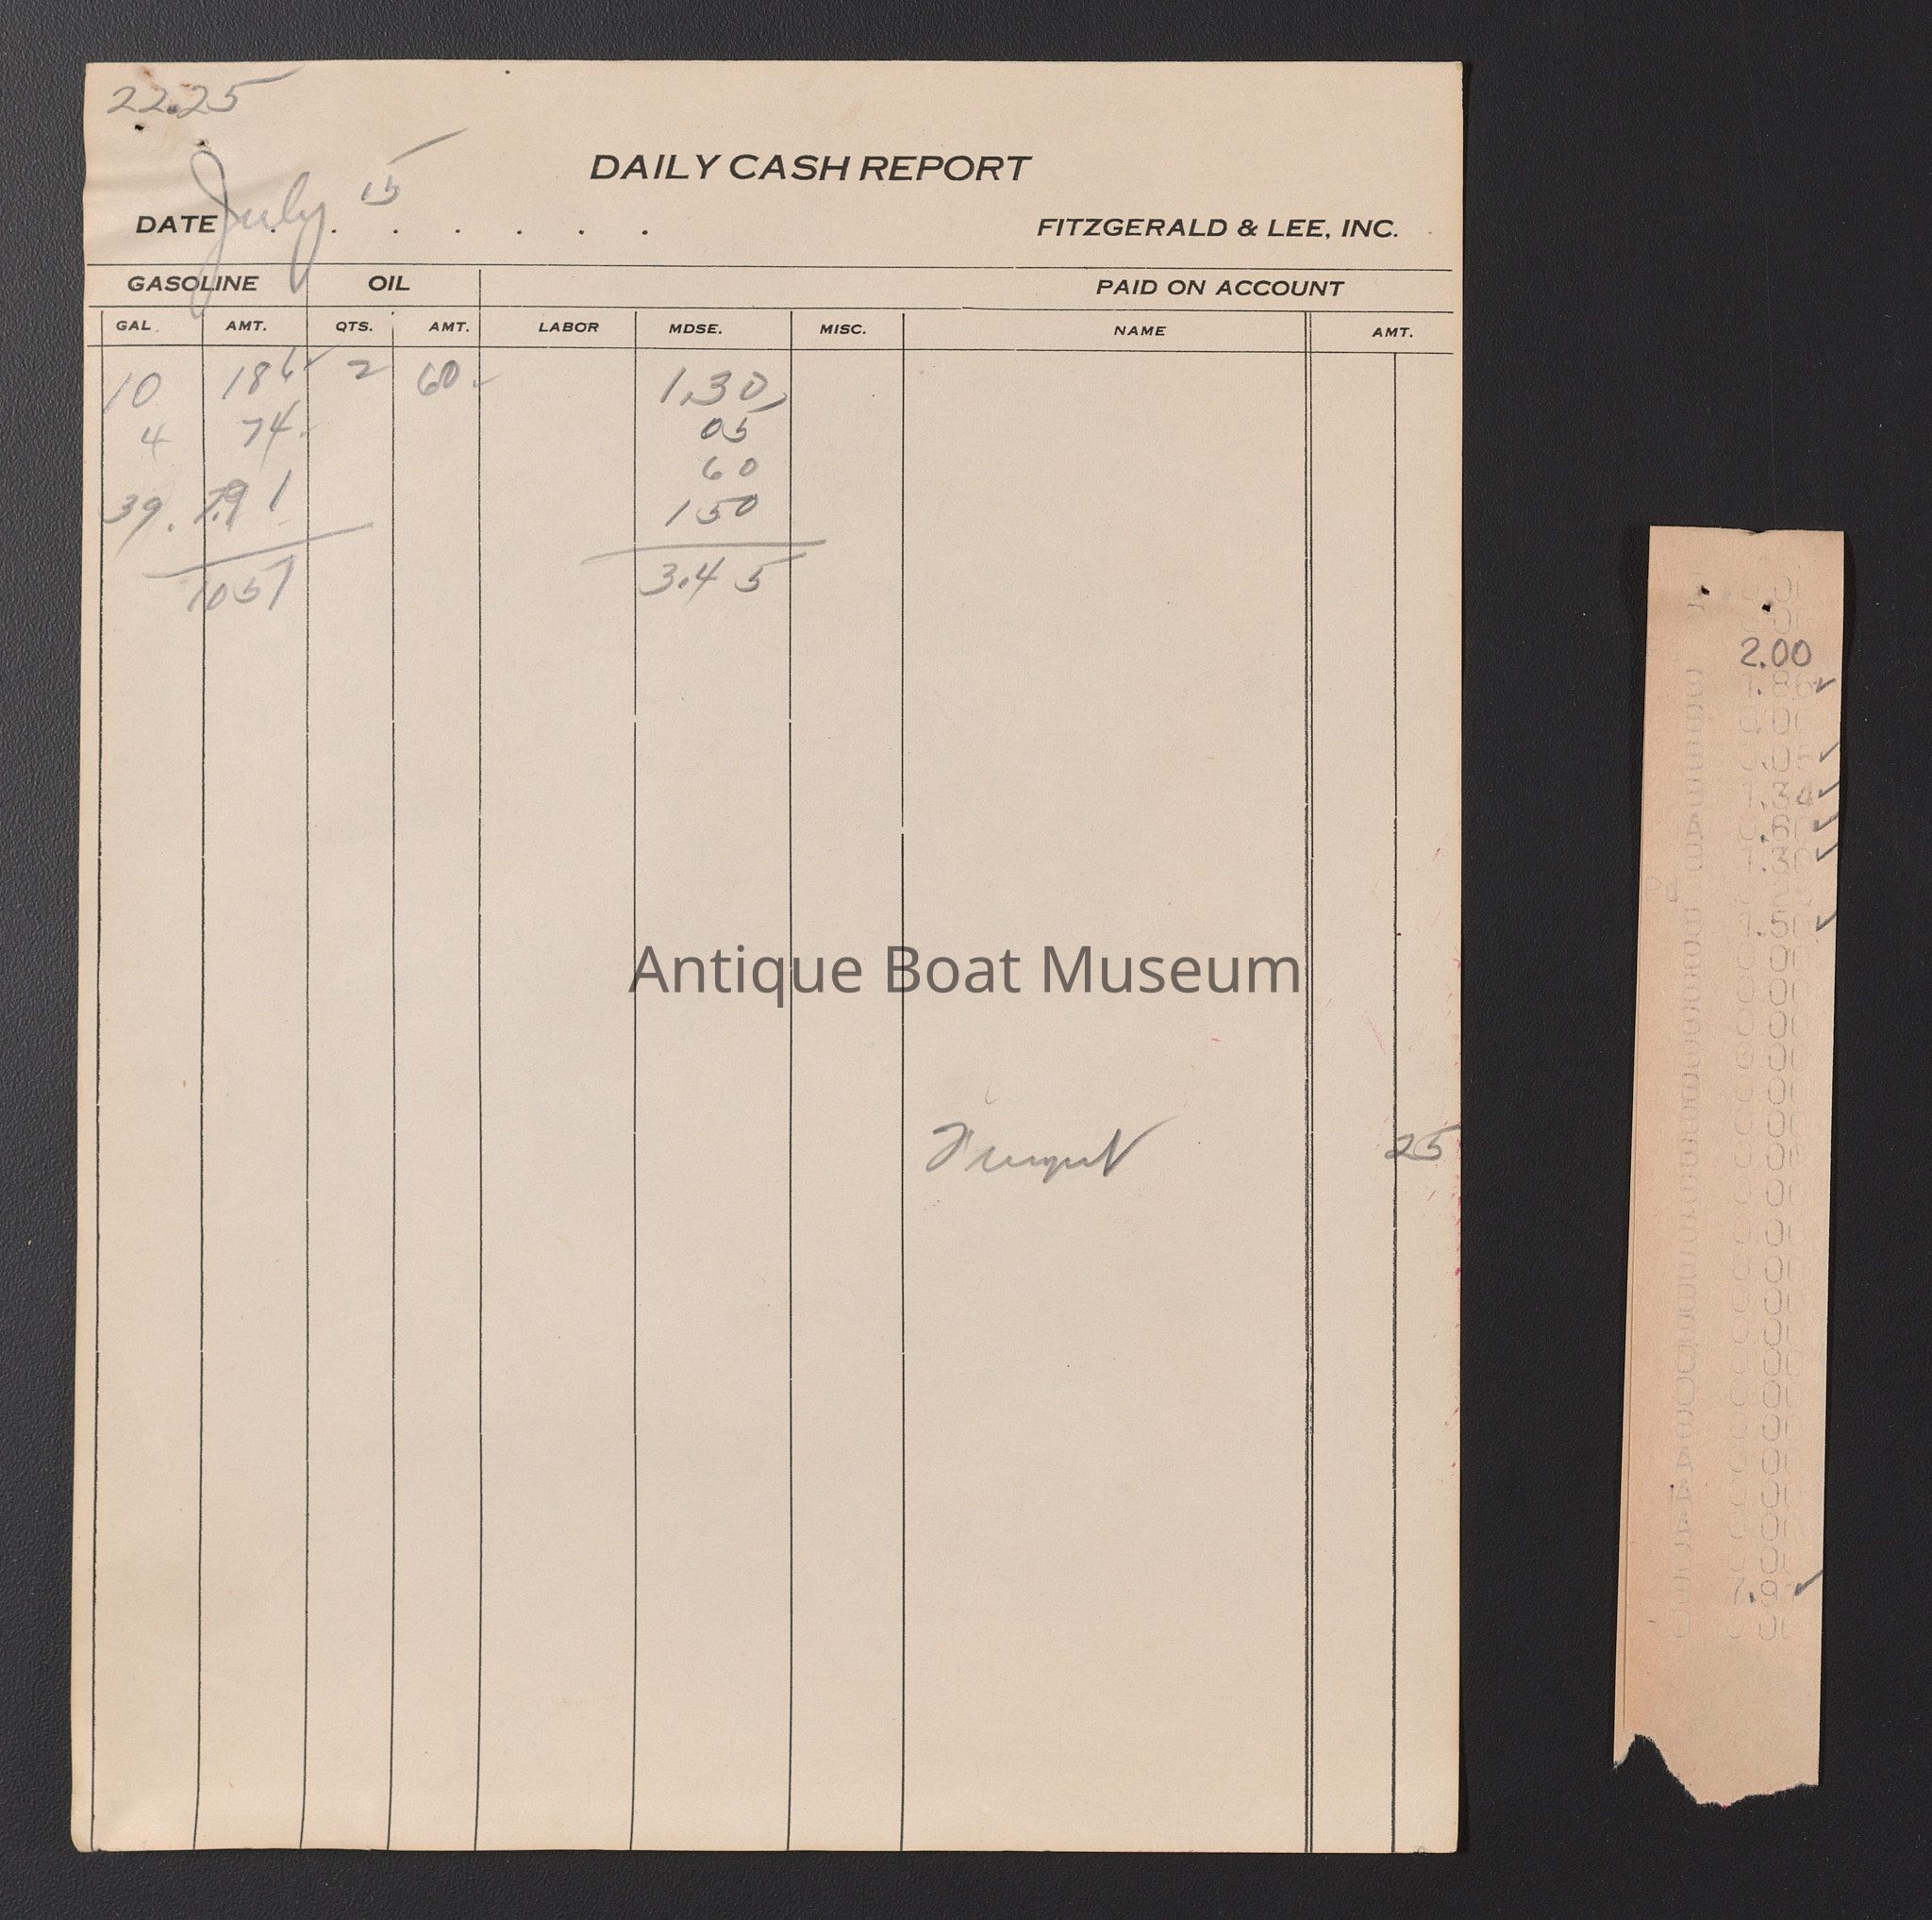 22.25
DAILY CASH REPORT
DATE July 15 . . . . . . .
FITZGERALD & LEE, INC.
GASOLINE OIL PAID ON ACCOUNT
GAL. AMT. QTS. AMT. LABOR MDSE. MISC. NAME AMT.
10 186 2 60 1.30
4 74 05
60
39. 7.91 150
1051 3.45
25
Antique Boat Museum
2.00
1.86 ✓
0.00
.05 ✓
1.34 ✓
✓
1.30 ✓
Pd
1.50 ✓
0 00
0 00
0 00
0 00
0 00
0 00
0 00
0 00
0 00
0 00
0 00
0 00
0 00
0 00
0 00
A 0 00
A 0 00
A 0 00
0 00
7.9 ✓
0 00